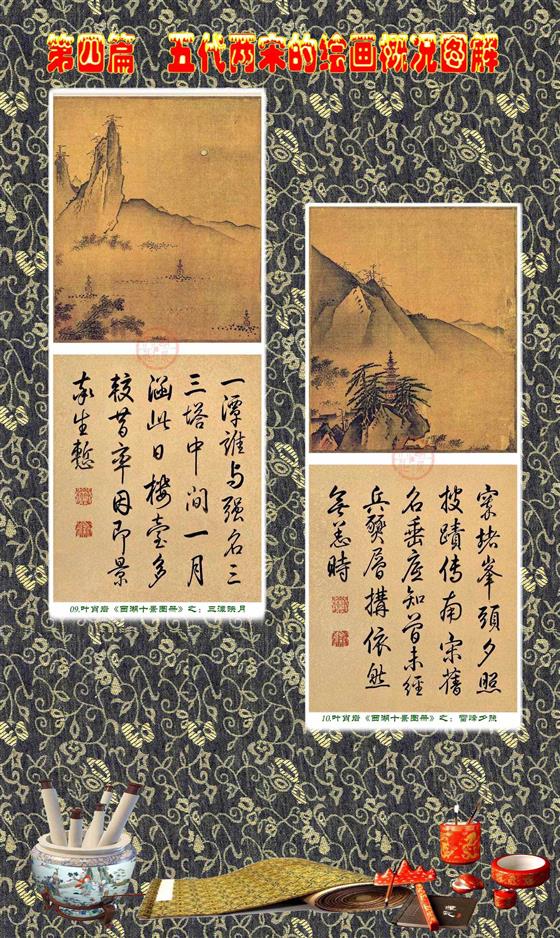 第四篇 五代两宋的绘画概况图解
一潭誰与强名三
三塔中间一月
涵此日楼臺多
較昔率因即景
亦生慙
09.叶肖岩《西湖十景图册》之：三潭映月
窣堵峯頭夕照
披蹟傳南宋舊
名垂底知曾未經
兵燹層搆依然
無恙時
10.叶肖岩《西湖十景图册》之：雷峰夕照